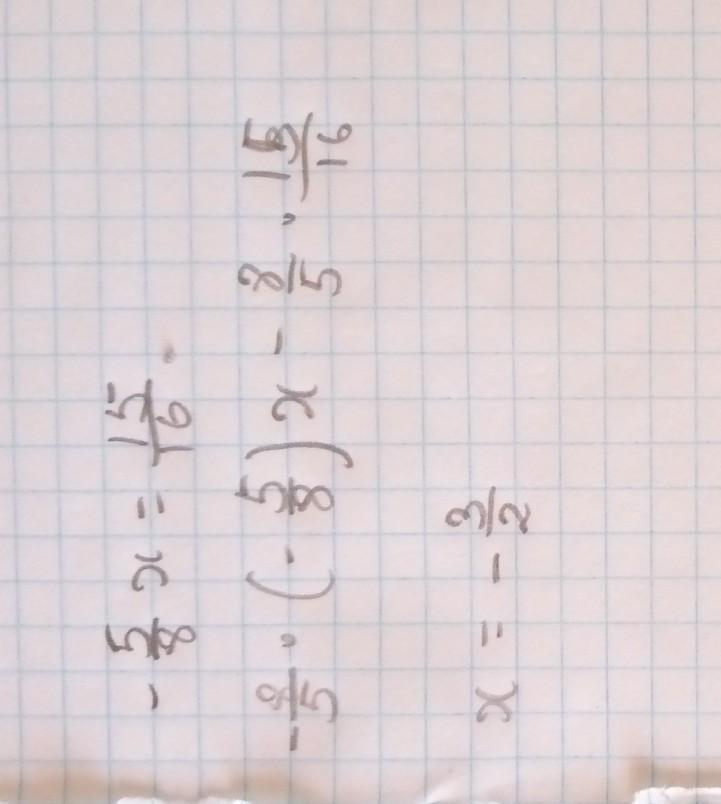 - 5/8 x = 15/16.
- 8/5 · (- 5/8) x - 8/5 · 15/16
x = - 3/2